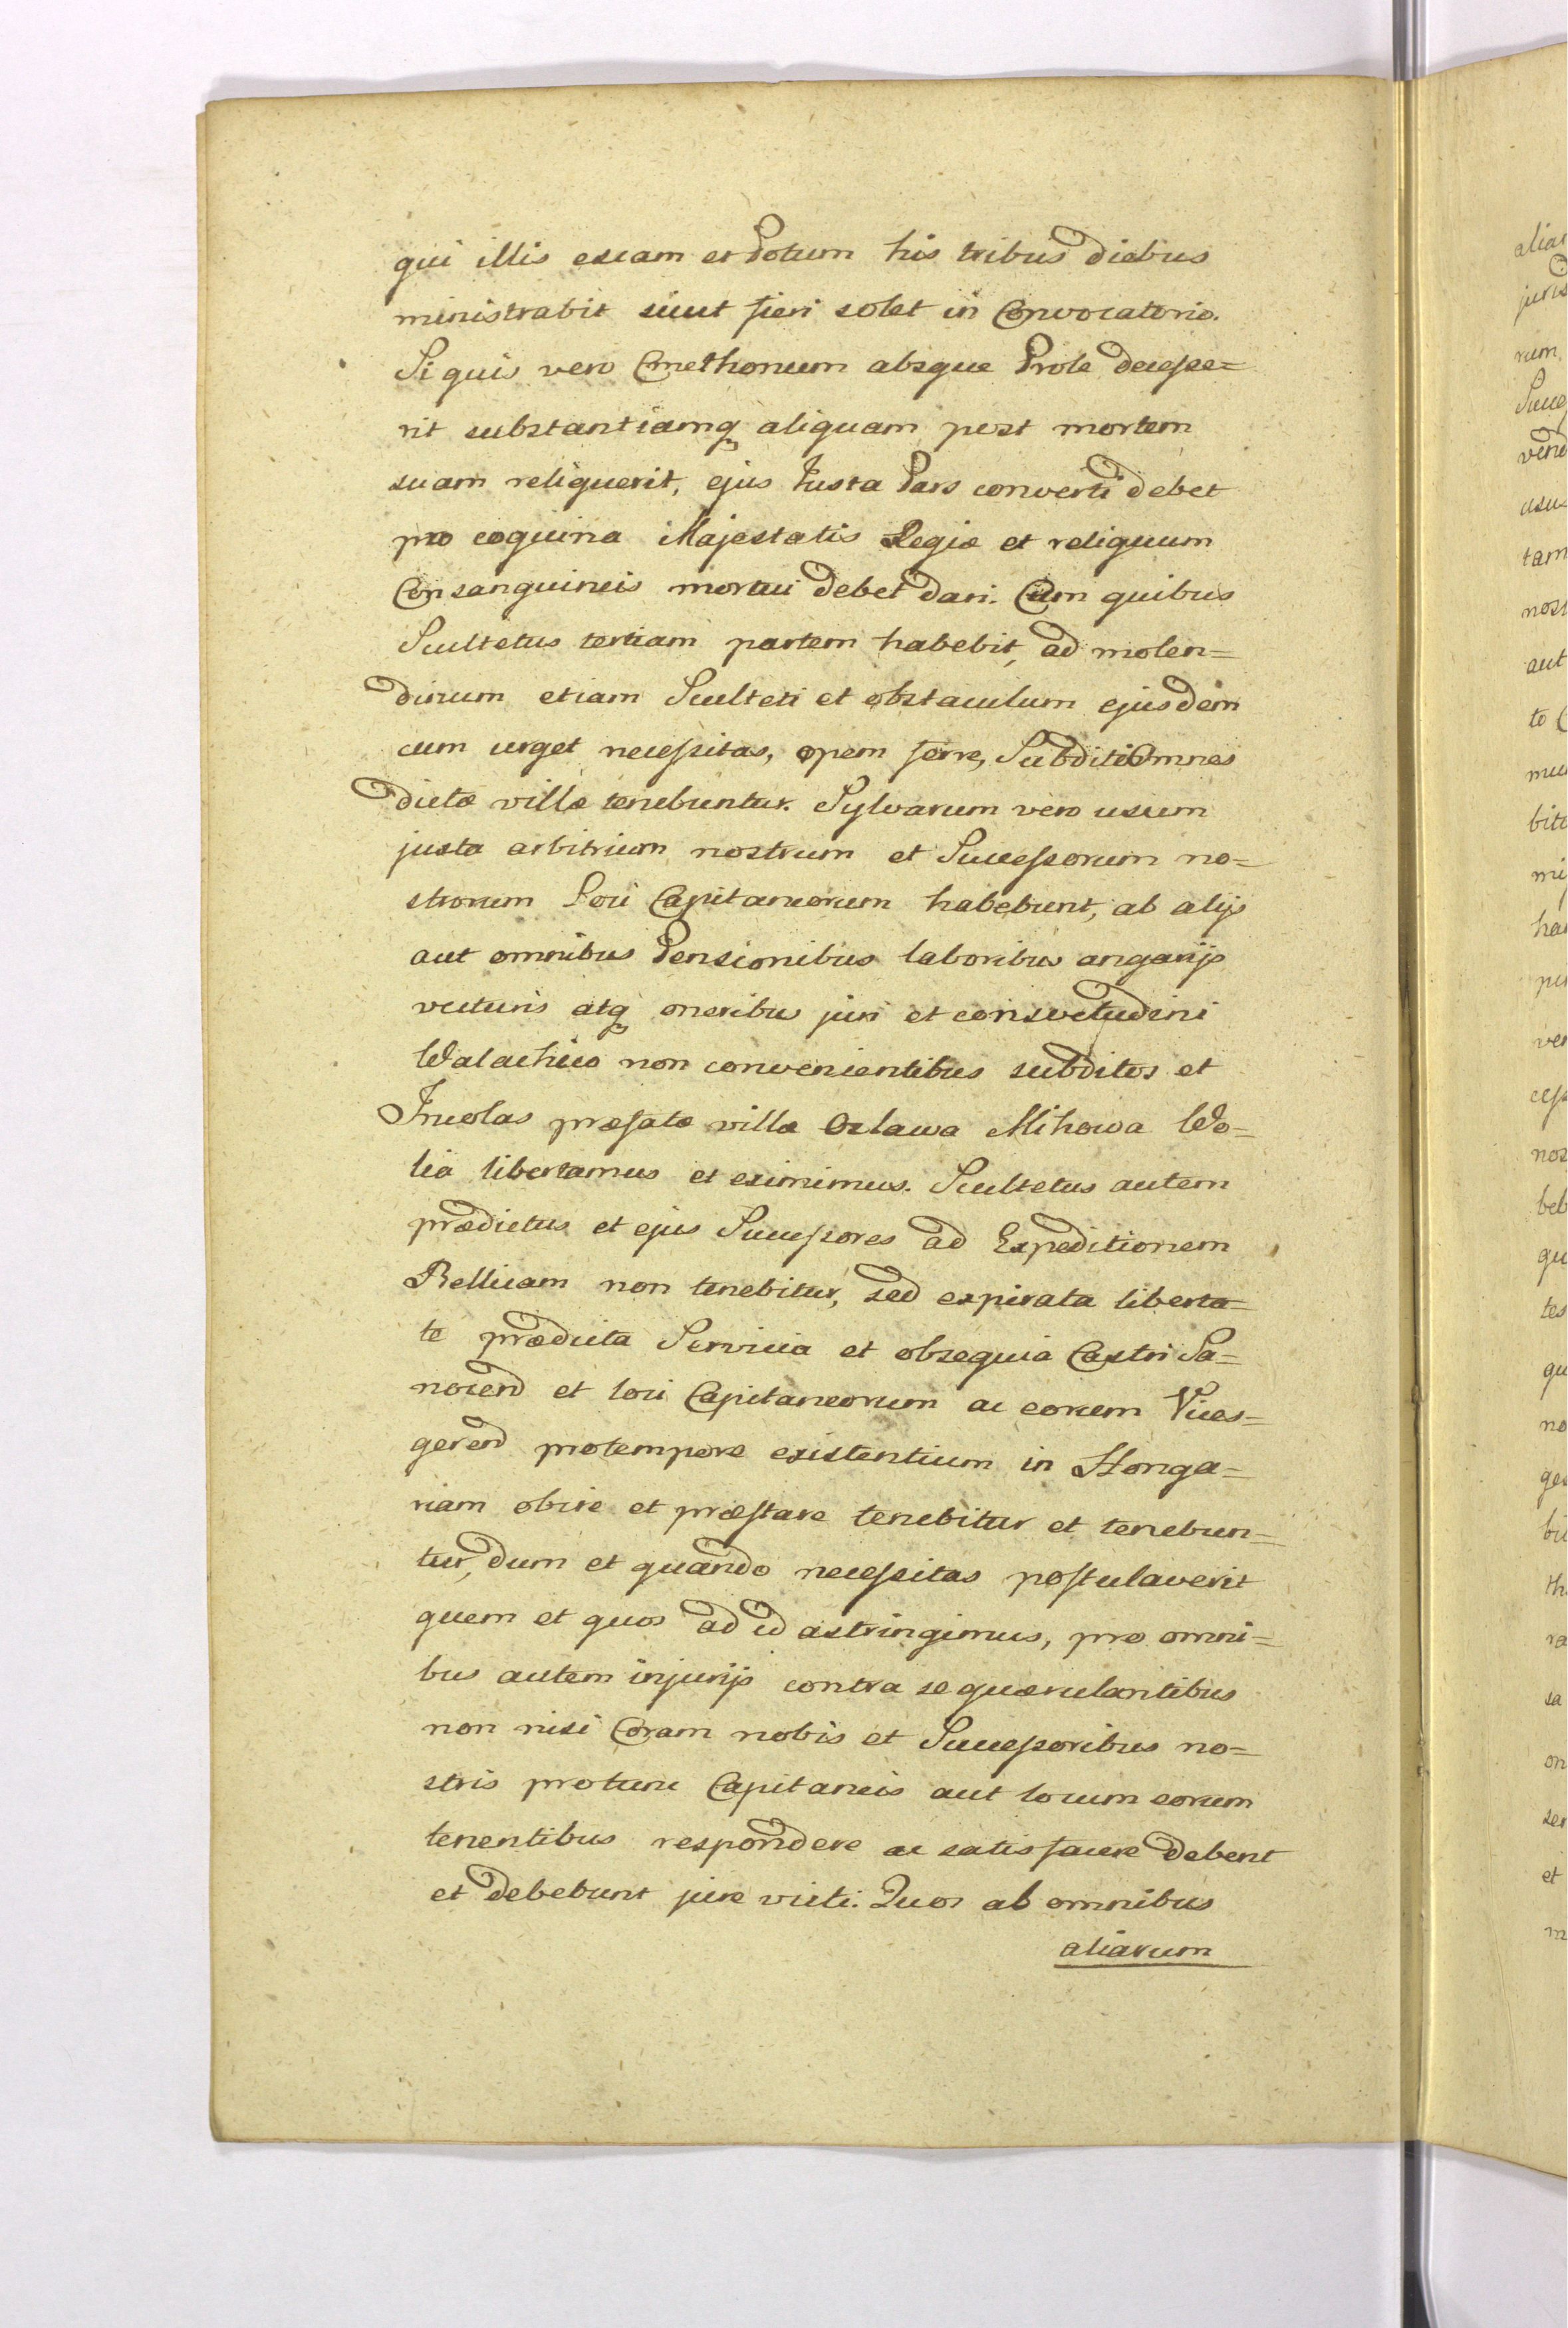 qui illis escam et Potum his tribus diebus
ministrabit sicut fieri solet in Convocatorio.
Si quis vero Cmethonum absque Prole decesse=
rit substantiamq aliquam post mortem
suam reliquerit, ejus Justa Pars converti debet
pro coquina Majestatis Regiæ et reliquum
Consanguineis mortui debet dari. Cum quibus
Scultetus tertiam partem habebit, ad molen=
dinum etiam Sculteti et obstaculum ejusdem
cum urget necessitas, opem ferre, Subditi Omnes
dictæ villæ tenebuntur. Sylvarum vero usum
justa arbitrium nostrum et Successorum no=
strorum Loci Capitaneorum habebunt, ab alijs
aut omnibus Pensionibus laboribus angarijs
vecturis atq oneribus juri et consvetudini
Walachico non convenientibus subditos et
Incolas præfatæ villæ Oslawa Mihowa Wo=
lia libertamus et eximimus. Scultetus autem
prædictus et ejus Successores ad Expeditionem
Bellicam non tenebitur, sed expirata liberta=
te prædicta Servicia et obsequia Castri Sa=
nocend et loci Capitaneorum ac eorum Vices=
gerend protempore existentium in Honga=
riam obire et præstare tenebitur et tenebun=
tur, dum et quando necessitas postulaverit
quem et quos ad id astringimus, pro omni=
bus autem injurijs contra se quærulantibus
non nisi Coram nobis et Successoribus no=
stris protunc Capitaneis aut locum eorum
tenentibus respondere ac satisfacere debent
et debebunt jure victi. Quos ab omnibus
aliarum